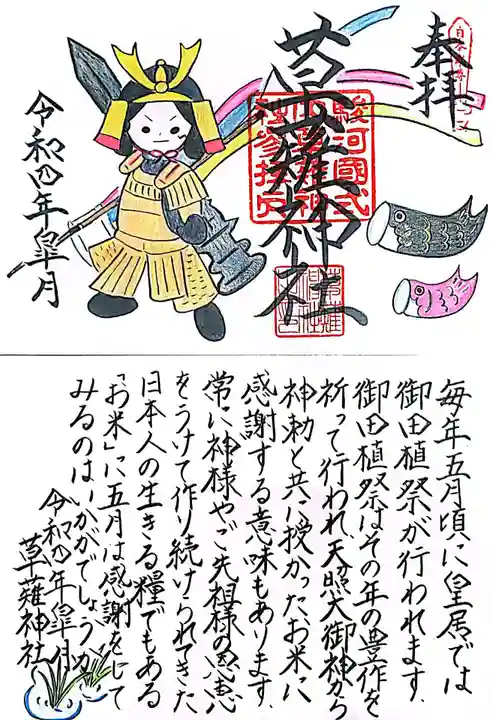 奉拝
草薙神社
令和四年皐月
毎年五月頃に皇居では
御田植祭が行われます。
御田植祭はその年の豊作を
祈って行われ、天照大御神から
神勅と共に授かったお米に
感謝する意味もあります。
常に神様やご先祖様の恩恵
をうけて作り続けられてきた
日本人の生きる糧でもある
「お米」に五月は感謝をして
みるのはいかがでしょうか
令和四年皐月
草薙神社